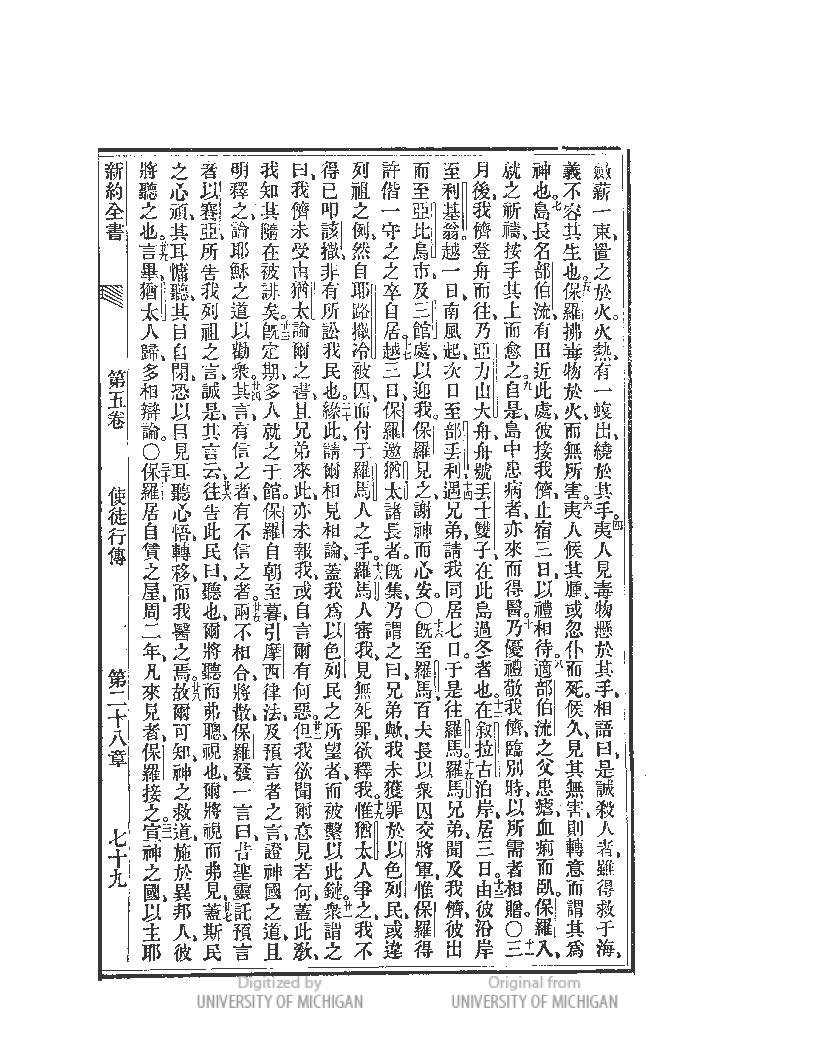 斂薪一束置之於火火熱有一蝮出繞於其手四夷人見毒物懸於其手相語曰是誠殺人者雖得救于海、
義不容其生也五保羅拂毒物於火而無所害六夷人候其腫或忽仆而死候久見其無害則轉意而謂其爲
神也七島長名部伯流有田近此處彼接我儕止宿三日以禮相待八適部伯流之父患瘧血痢而臥保羅入、
就之祈禱按手其上而愈之九自是島中患病者亦來而得醫十乃優禮敬我儕臨別時以所需者相贈〇十一三
月後我儕登舟而往乃亞力山大舟舟號丢士雙子在此島過冬者也十二在叙拉古泊岸居三日十三由彼沿岸
至利基翁越一日南風起次日至部丢利十四遇兄弟請我同居七日于是往羅馬十五羅馬兄弟聞及我儕彼出
而至亞比烏市及三館處以迎我保羅見之謝神而心安〇十六既至羅馬百夫長以衆囚交將軍惟保羅得
許偕一守之之卒自居十七越三日保羅邀猶太諸長者既集乃謂之曰兄弟歟我未獲罪於以色列民或違
列祖之例然自耶路撒冷被囚而付于羅馬人之手十八羅馬人審我見無死罪欲釋我十九惟猶太人爭之我不
得已叩該撒非有所訟我民也二十緣此請爾相見相論蓋我爲以色列民之所望者而被繫以此鏈廿一衆謂之
曰我儕未受由猶太論爾之書且兄弟來此亦未報我或自言爾有何惡廿二但我欲聞爾意見若何蓋此敎、
我知其隨在被誹矣廿三既定期多人就之于館保羅自朝至暮引摩西律法及預言者之言證神國之道且
明釋之論耶穌之道以勸衆廿四其言有信之者有不信之者廿五兩不相合將散保羅發一言曰昔聖靈託預言
者以賽亞所告我列祖之言誠是其言云廿六往告此民曰聽也爾將聽而弗聰視也爾將視而弗見廿七蓋斯民
之心頑其耳慵聽其目自閉恐以目見耳聽心悟轉移而我醫之焉廿八故爾可知神之救道施於異邦人彼
將聽之也廿九言畢猶太人歸多相辯論〇三十保羅居自賃之屋周二年凡來見者保羅接之三一宣神之國以主耶
新約全書 第五卷 使徒行傳 第二十八章 七十九
Digitized by
UNIVERSITY OF MICHIGAN
Original from
UNIVERSITY OF MICHIGAN